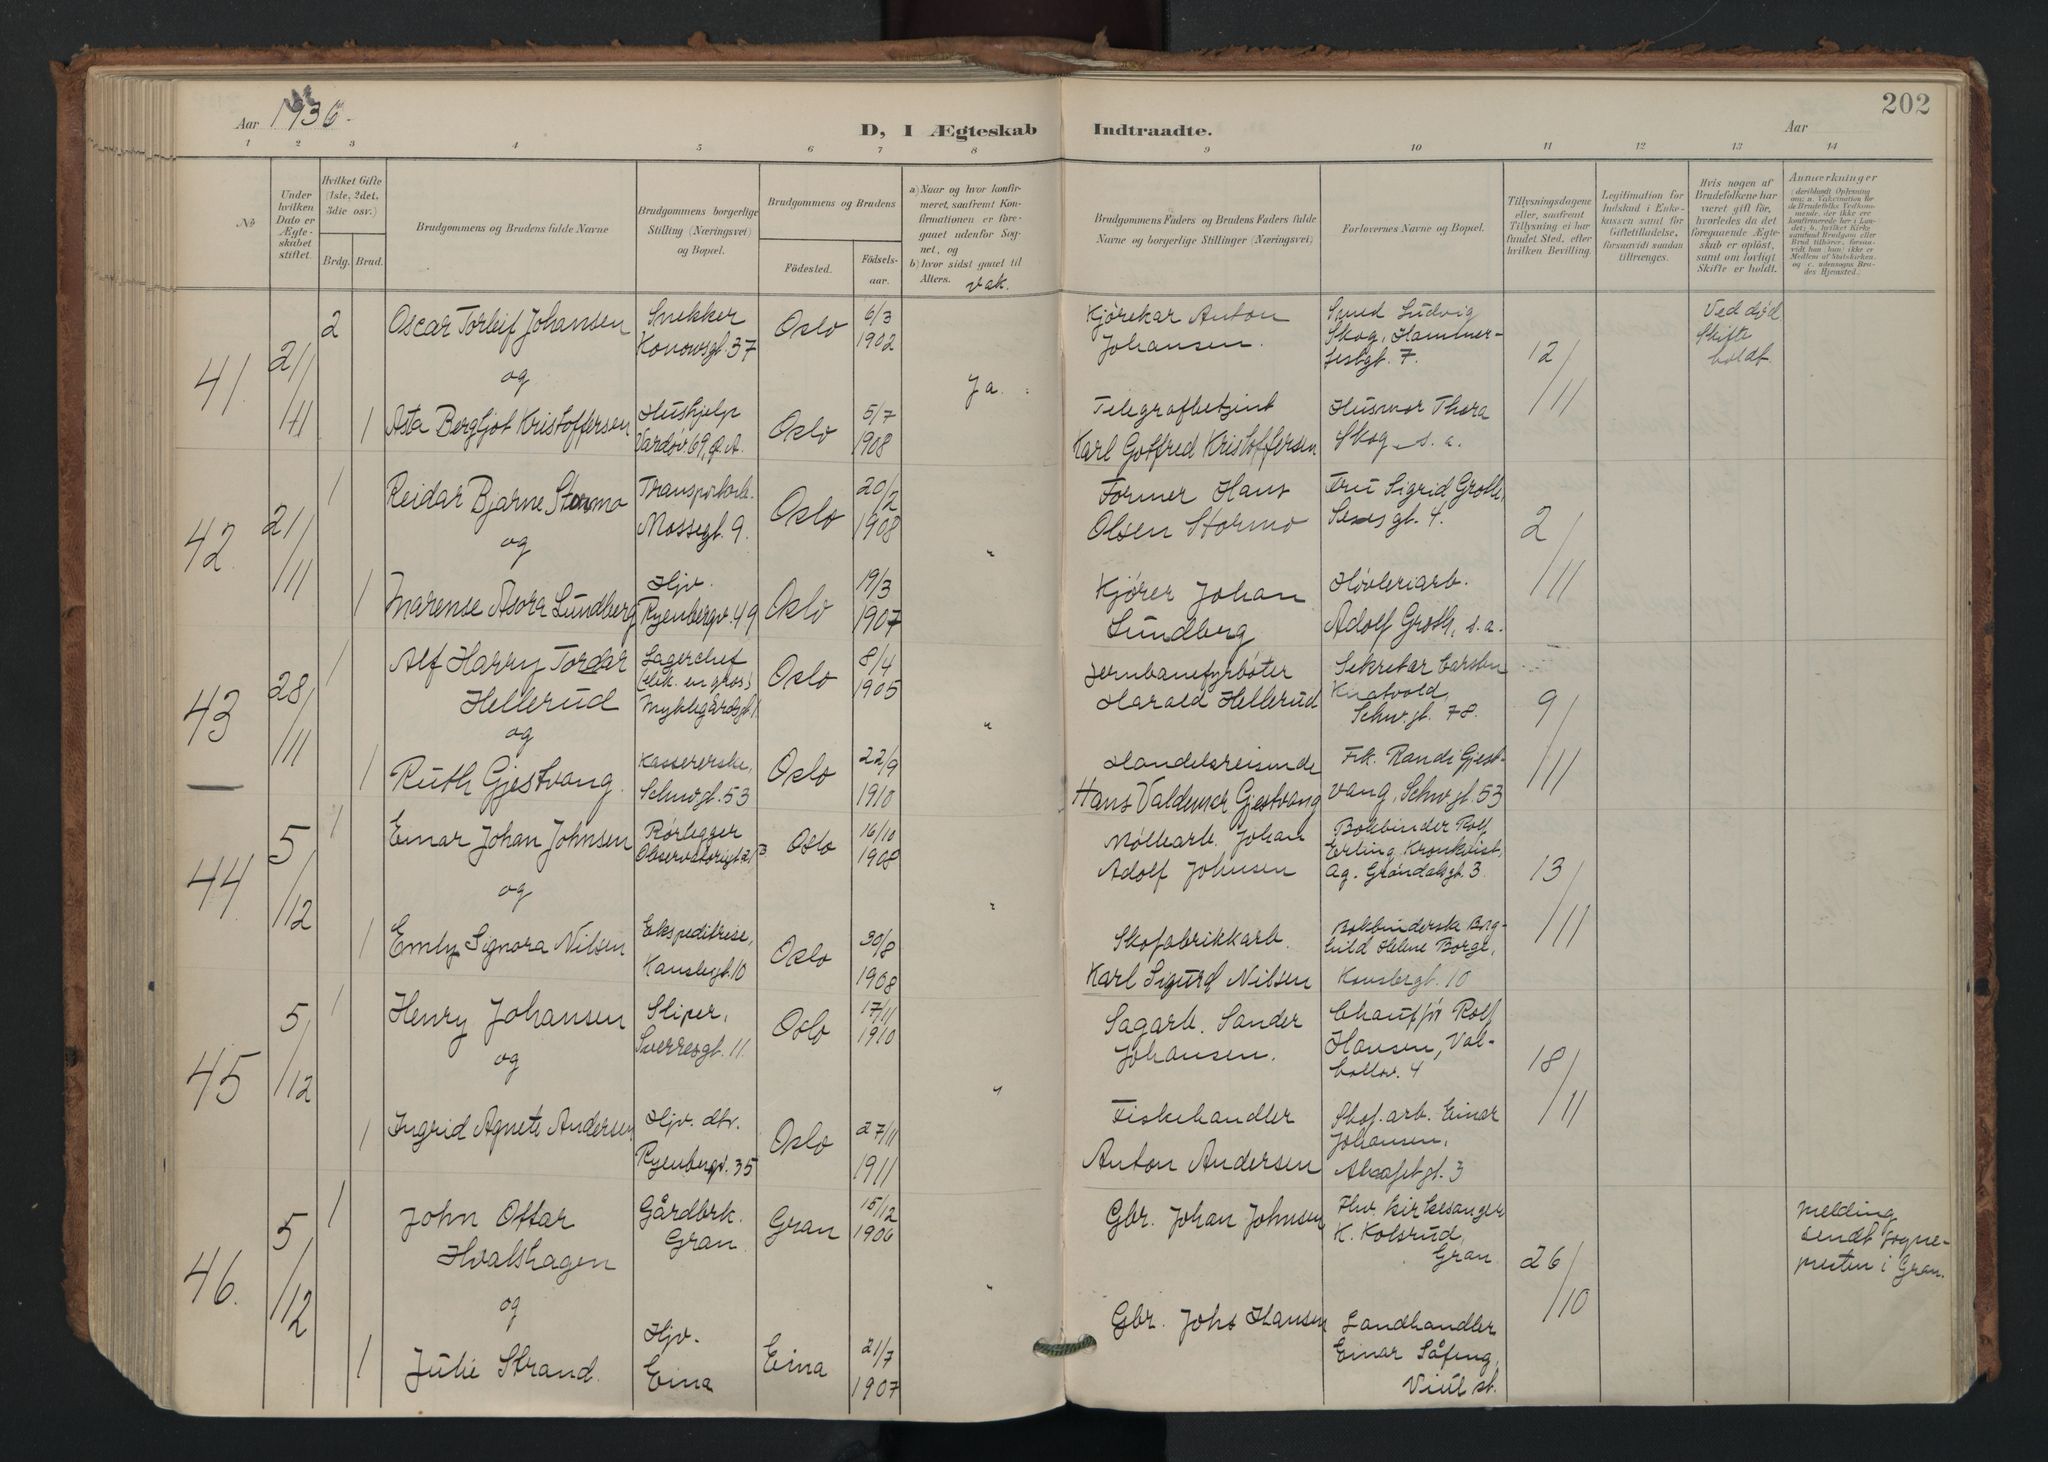 Aar 1936.
D, I Ægteskab Indtraadte.
Aar
202
1 2 3 4 5 6 7 8 9 10 11 12 13 14
No
Under hvilken Dato er Ægteskabet stiftet.
Hvilket Gifte (1ste, 2det, 3die osv.)
Brdg. Brud.
Brudgommens og Brudens fulde Navne
Brudgommens borgerlige Stilling (Næringsvei) og Bopæl.
Brudgommens og Brudens
Fødested. Fødselsaar.
a) Naar og hvor konfirmeret, saafremt Konfirmationen er foregaaet udenfor Sognet, og
b) hvor sidst gaaet til Alters.
vak.
Brudgommens Faders og Brudens Faders fulde Navne og borgerlige Stillinger (Næringsvei)
Forlovernes Navne og Bopæl.
Tillysningsdagene eller, saafremt Tillysning ei har fundet Sted, efter hvilken Bevilling.
Legitimation for Indskud i Enkekassen samt for Giftetilladelse, forsaavidt saadan tiltrænges.
Hvis nogen af Brudefolkene har været gift før, hvorledes da det foregaaende Ægteskab er opløst, samt om lovligt Skifte er holdt.
Anmærkninger
41. 21/11 2 Oscar Torleif Johansen
Snekker
Konowsgt. 37
Oslo 6/3 1902
Kjørekar Anton
Johansen.
Smed Ludvig
Skog, Hammer-
festgt. 7.
12/11
Ved død
Skifte
holdt.
og
Ja.
1 Asta Bergljot Kristoffersen
Hushjelp
Oslo 5/7 1908
Telegrafbetjent
Karl Gotfred Kristoffersen
Husmor Thora
Skog, s. a.
42. 21/11 1 Reidar Bjarne Stormo
Transportarb.
Mossegt. 9.
Oslo 20/2 1908
Former Hans
Olsen Stormo
Fru Sigrid Groth,
4.
2/11
og
"
1 Marense Asora Lundberg
Hjv.
Ryenbergv. 49
Oslo 19/3 1907
Kjører Johan
Lundberg
Høvleriarb.
Adolf Groth, s. a.
43 28/11 1 Alf Harry Tordar
Hellerud
Lagerchef
(elek. en gros)
Myklegårdsgt. 1.
Oslo 8/4 1905
Jernbanefyrbøter
Harald Hellerud
Sekretær Carsten
Schw. gt. 78.
9/11
og
"
1 Ruth Gjestvang.
Kassererske,
Schwgt. 53
Oslo 22/9 1910
Handelsreisende
Hans Valdemar Gjestvang
Frk. Randi Gjest-
vang, Schw. gt. 53
44. 5/12 1 Einar Johan Johnsen
Rørlegger
Observatorigt. 21 B
Oslo 16/10 1908
Møllearb. Johan
Adolf Johnsen
Bokbinder Rolf
Erling Kronkvist,
Ag. Grøndalsgt. 3.
13/11
og
"
1 Emly Signora Nilsen
Ekspeditrise,
10
Oslo 30/8 1908
Skofabrikkarb.
Karl Sigurd Nilsen
Bokbinderske Borg-
hild Helene Borge,
10
45 5/12 1 Henry Johansen
Sliper,
Sverresgt. 11.
Oslo 17/11 1910
Sagarb. Sander
Johansen.
Chauffør Rolf
Hansen, Val-
hallv. 4
18/11
og
"
1 Ingrid Agnete Andersen
Hjv. dtr.
Ryenbergv. 35
Oslo 27/11 1911
Fiskehandler
Anton Andersen
Skof. arb. Einar
Johansen,
3
46. 5/12 1 John Ottar
Hvalshagen
Gårdbrk.
Gran.
Gran 15/12 1906
Gbr. Johan Johnsen
Fhv. kirkesanger
K. Kolsrud,
Gran
26/10
Melding
sendt sogne-
presten i Gran.
og
"
1 Julie Strand.
Hjv.
Eina
Eina 21/7 1907
Gbr. Johs Hansen
Landhandler
Einar Såfeng,